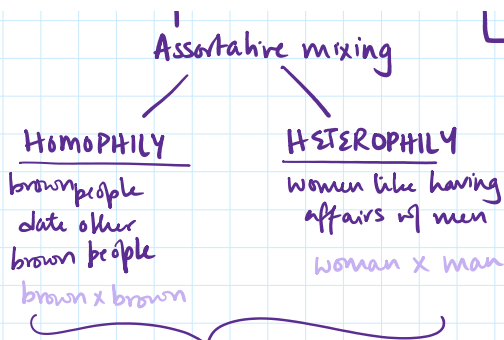 Assortative mixing
HOMOPHILY
brown people
date other
brown people
brown x brown
HETEROPHILY
women like having
affairs w/ men
woman x man